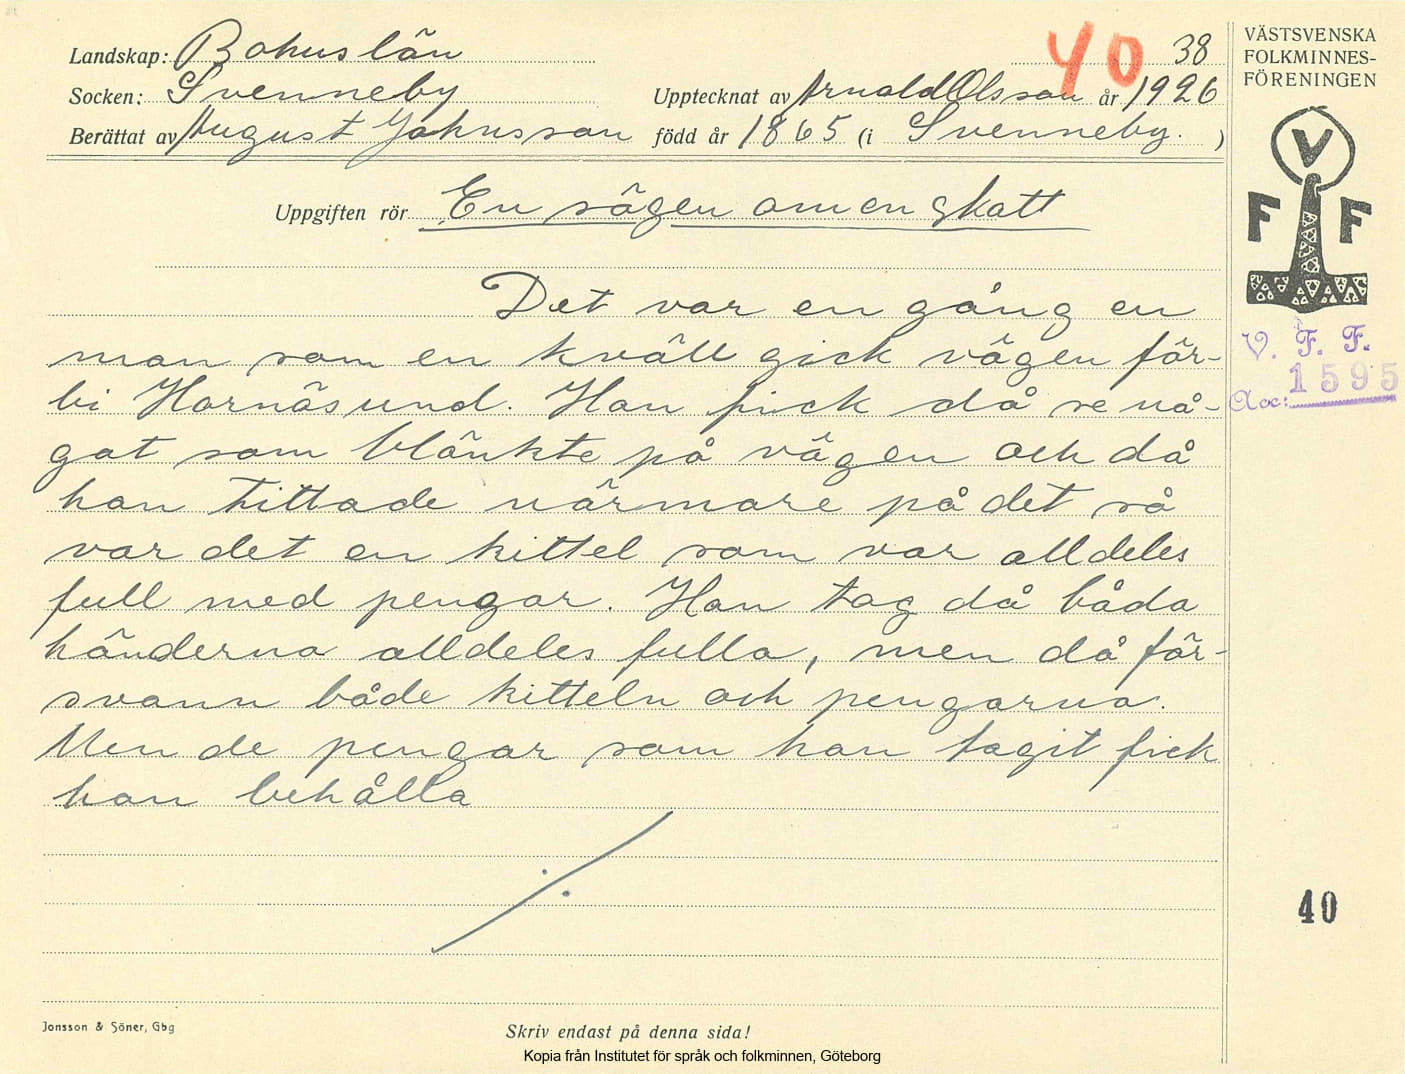 Landskap: Bohuslän
40 38
Socken: Svenneby Upptecknat av Arnold Olsson år 1926
Berättat av August Johnsson född år 1865 (i Svenneby. )
Uppgiften rör En sägen om en skatt
Det var en gång en
man som en kväll gick vägen för-
bi Hornäsund. Han fick då se nå-
got som blänkte på vägen och då
han tittade närmare på det så
var det en kittel som var alldeles
full med pengar. Han tog då båda
händerna alldeles fulla, men då för-
svann både kitteln och pengarna.
Men de pengar som han tagit fick
han behålla
Jonsson & Söner, Gbg
Skriv endast på denna sida!
Kopia från Institutet för språk och folkminnen, Göteborg
VÄSTSVENSKA
FOLKMINNES-
FÖRENINGEN
V
F F
V. F. F.
Acc: 1595
40